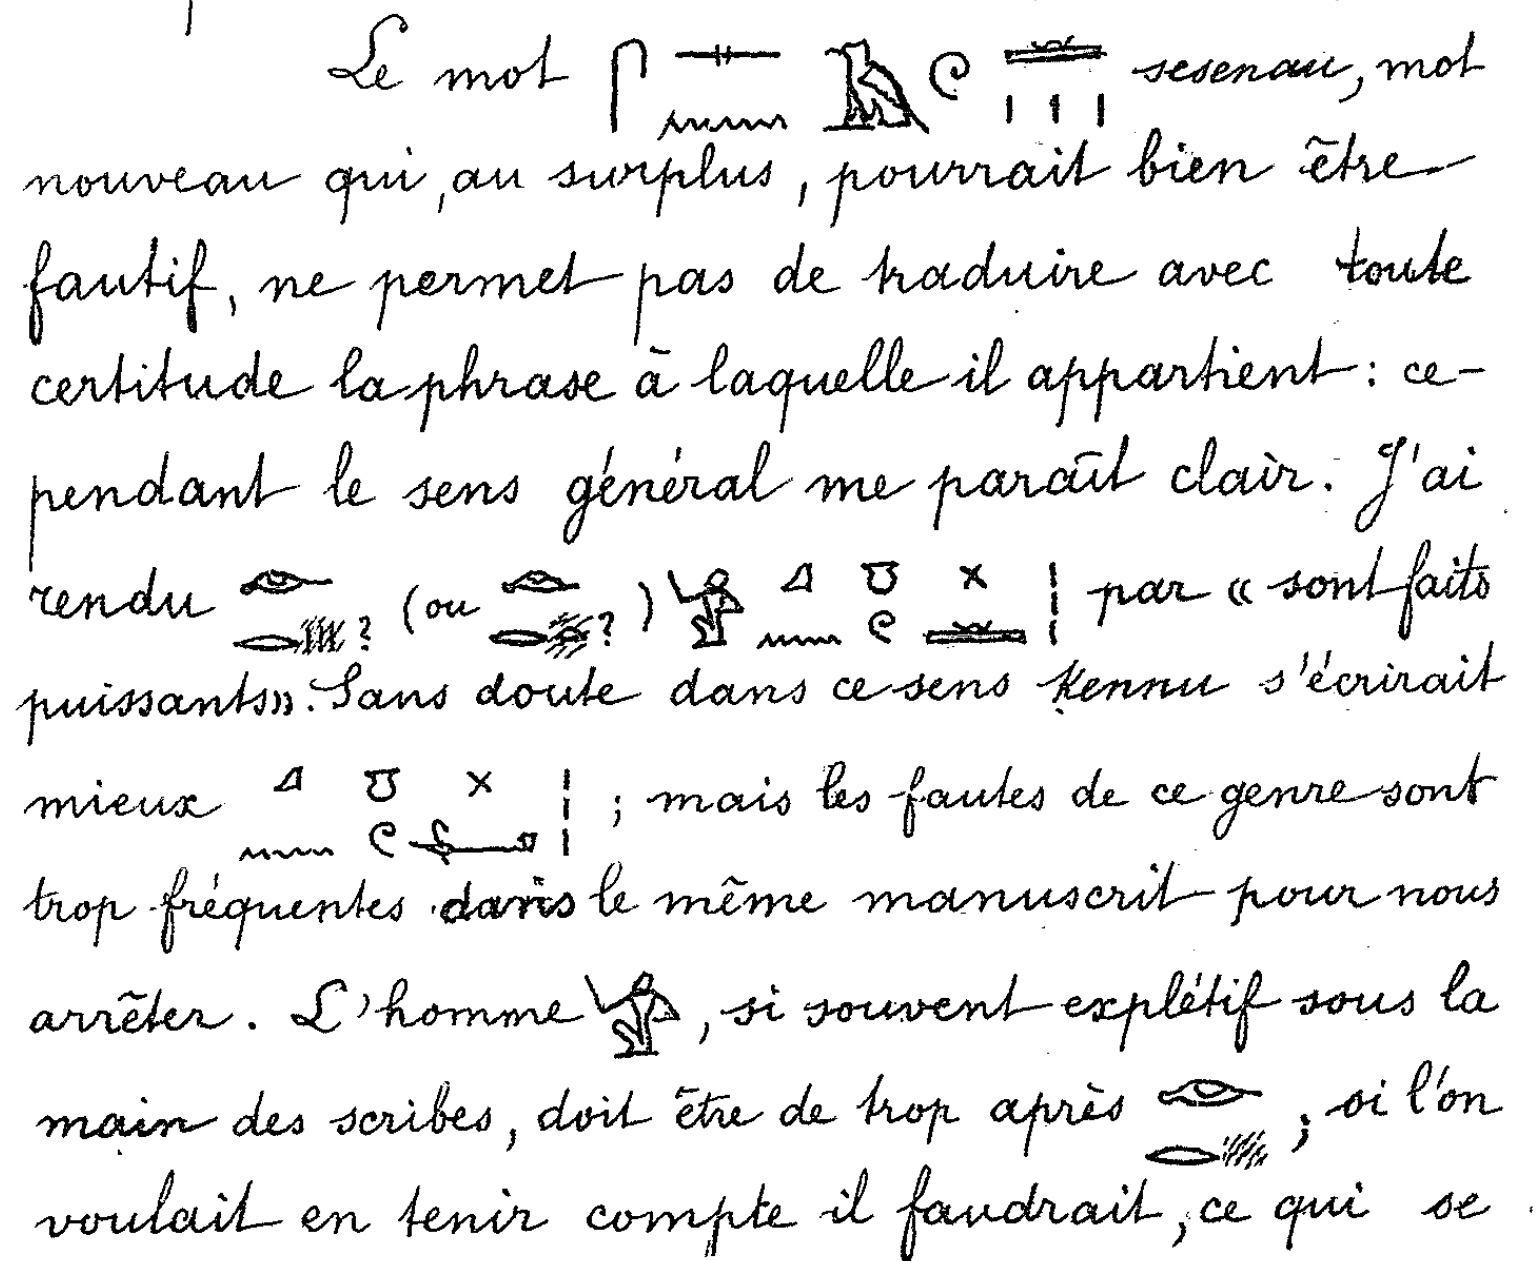 Le mot 𓋴𓊃𓈖𓄿𓏲𓏛𓏥 sesenau, mot
nouveau qui, au surplus, pourrait bien être
fautif, ne permet pas de traduire avec toute
certitude la phrase à laquelle il appartient : ce-
pendant le sens général me paraît clair. J'ai
rendu 𓁹𓂋? (ou 𓁹𓂋?) 𓈎𓈖𓏌𓏲𓏴𓏛𓏥 par « sont faits
puissants». Sans doute dans ce sens kennu s'écrirait
mieux 𓈎𓈖𓏌𓏲𓏴𓂡𓏥 ; mais les fautes de ce genre sont
trop fréquentes dans le même manuscrit pour nous
arrêter. L'homme , si souvent explétif sous la
main des scribes, doit être de trop après 𓁹𓂋 ; si l'on
voulait en tenir compte il faudrait, ce qui se